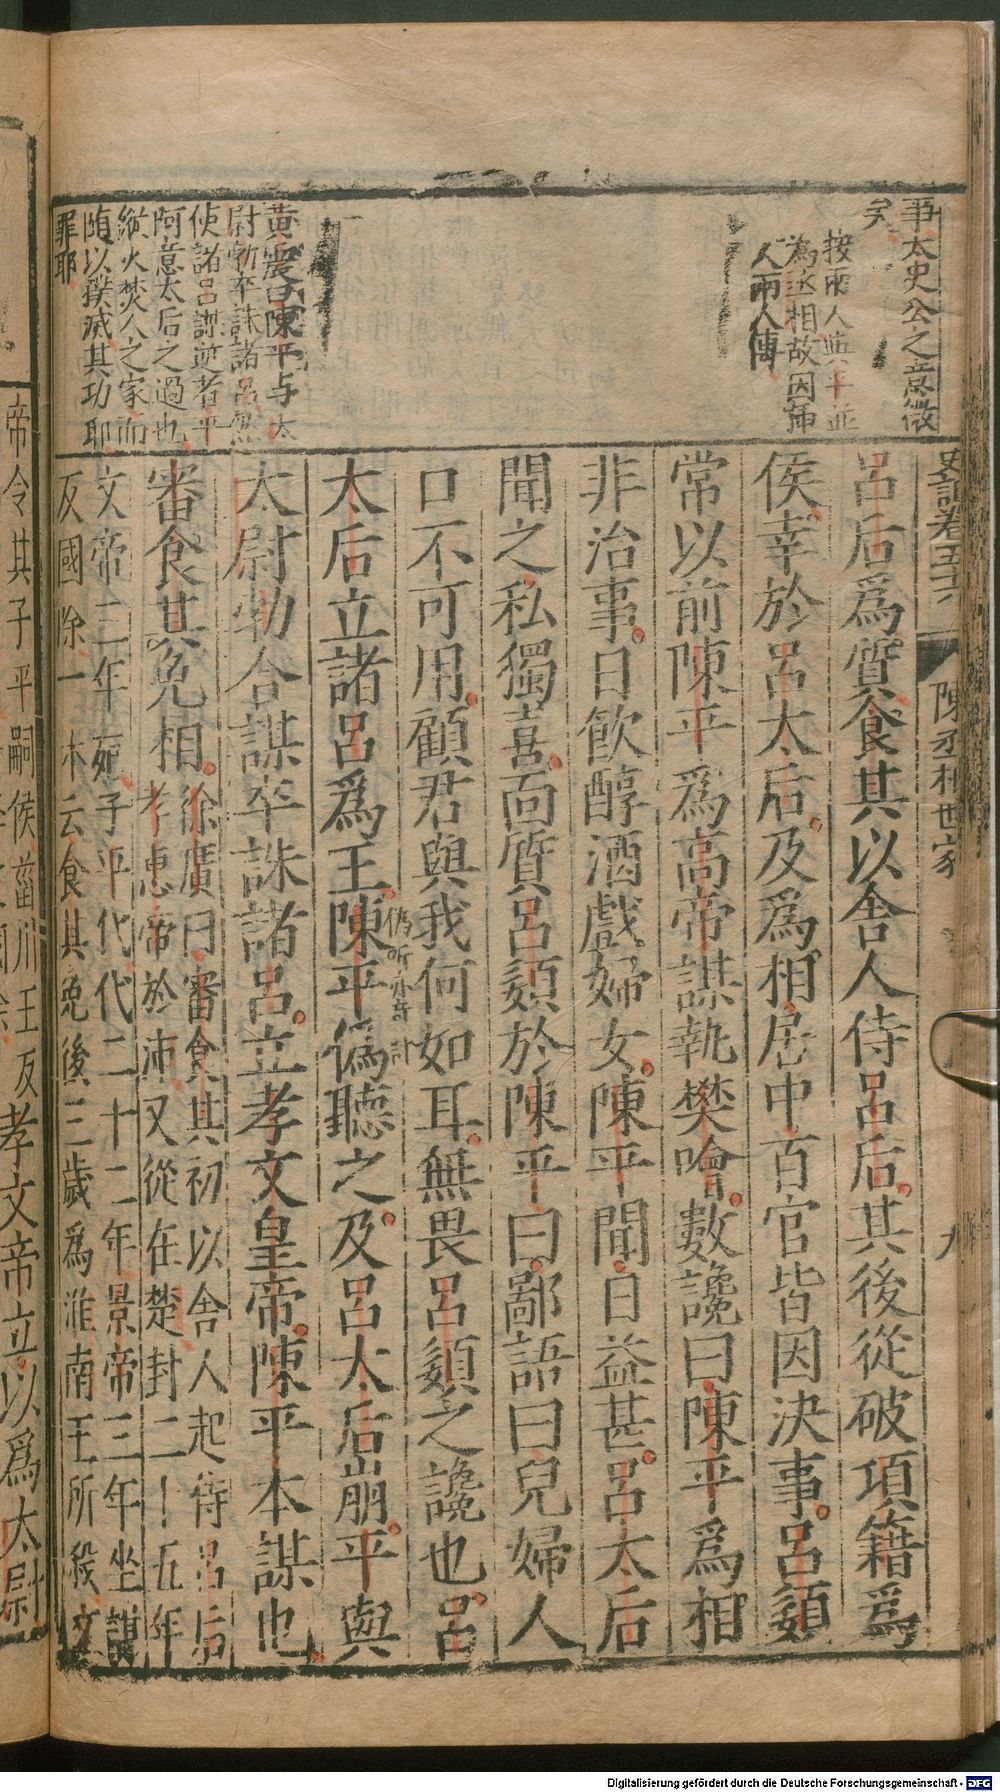 史記卷五十六
陳丞相世家
九
事太史公之意微
矣
按兩人與平並
為丞相故因插
入兩人傳
黃震曰陳平与太
尉勃卒誅諸呂然
使諸呂謀逆者平
阿意太后之過也
縱火焚人之家而
隨以撲滅其功耶
罪耶
呂后爲質食其以舍人侍呂后其後從破項籍爲
侯幸於呂太后及爲相居中百官皆因決事呂嬃
常以前陳平爲高帝謀執樊噲數讒曰陳平爲相
非治事日飲醇酒戲婦女陳平聞日益甚呂太后
聞之私獨喜面質呂嬃於陳平曰鄙語曰兒婦人
口不可用顧君與我何如耳無畏呂嬃之讒也呂
太后立諸呂爲王陳平僞聽之及呂太后崩平與
太尉勃合謀卒誅諸呂立孝文皇帝陳平本謀也
審食其免相
徐廣曰審食其初以舍人起侍呂后
孝惠帝於沛又從在楚封二十五年
文帝三年死子平代代二十二年景帝三年坐謀
反國除一本云食其免後三歲爲淮南王所殺文
帝令其子平嗣侯菑川王反
孝文帝立以爲太尉
Digitalisierung gefördert durch die Deutsche Forschungsgemeinschaft - DFG